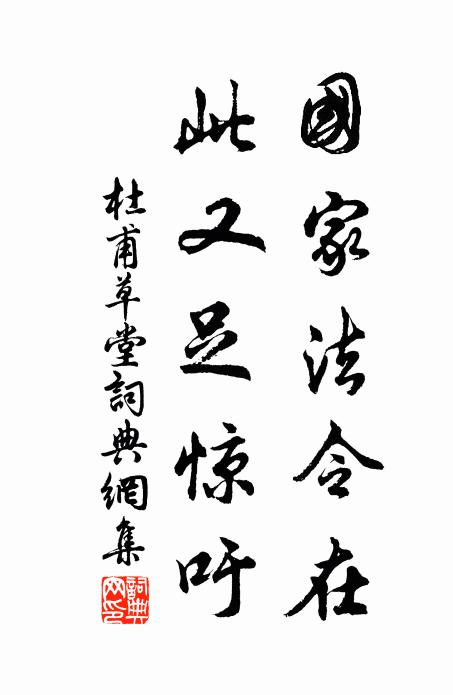 國家法令在
此又足惊吁
杜甫草堂詞典網集
詞典